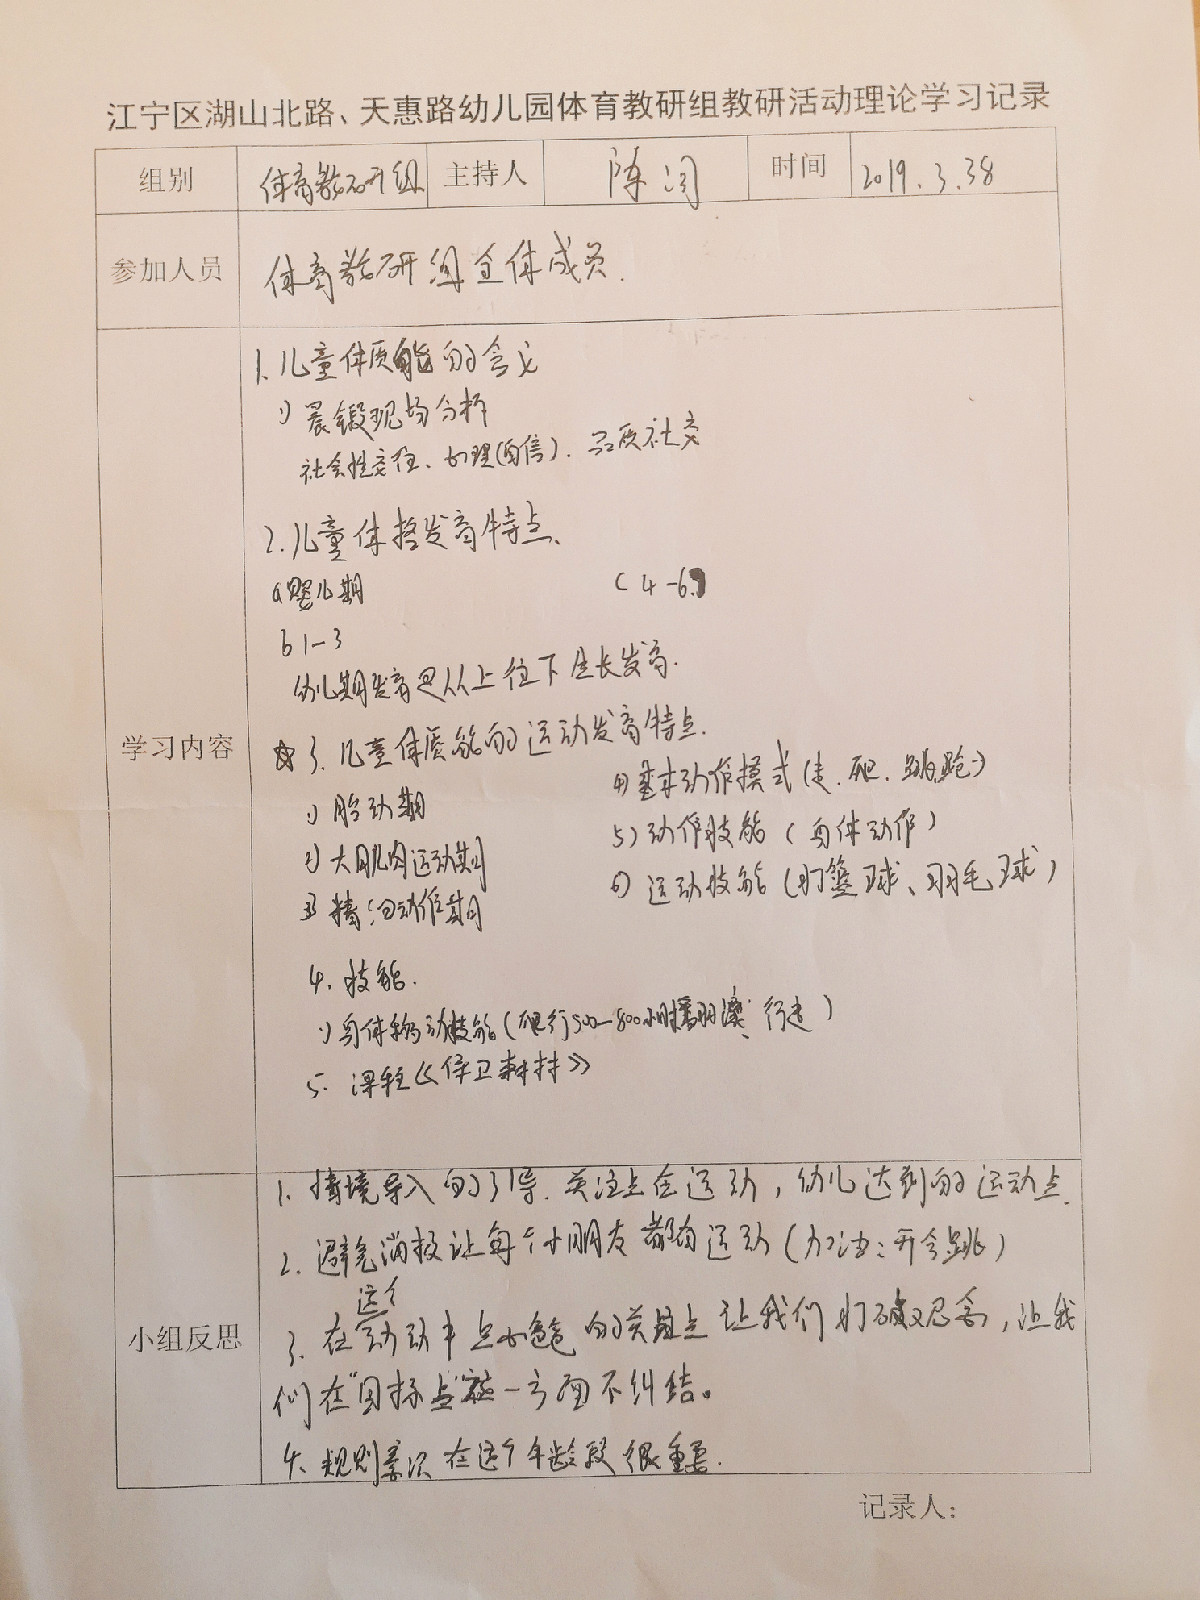 江宁区湖山北路、天惠路幼儿园体育教研组教研活动理论学习记录
组别 体育教研组 主持人 陈闯 时间 2019.3.38
参加人员 体育教研组全体成员.
学习内容
1. 儿童体质能的含义
1) 晨锻现场分析
社会性交往、心理(自信)、品质社交
2. 儿童体格发育特点、
a 婴儿期
c 4-6
b 1-3
幼儿期发育是从上往下生长发育.
☆3. 儿童体质能的运动发育特点.
1) 胎动期
2) 大肌肉运动期
3) 精细动作期
4) 基本动作模式(走、爬、跳、跑)
5) 动作技能(身体动作)
6) 运动技能(打篮球、羽毛球)
4. 技能.
1) 身体移动技能(爬行500-800小时 行走)
5. 课程《保卫森林》
小组反思
1. 情境导入的引导.关注点在运动,幼儿达到的运动点.
2. 避免消极让每个小朋友都有运动(加油:开合跳)
3. 在运动中 的关键点让我们打破 ,让我
们在"目标点"这一方面不纠结。
4. 规则意识在这个年龄段很重要.
记录人: